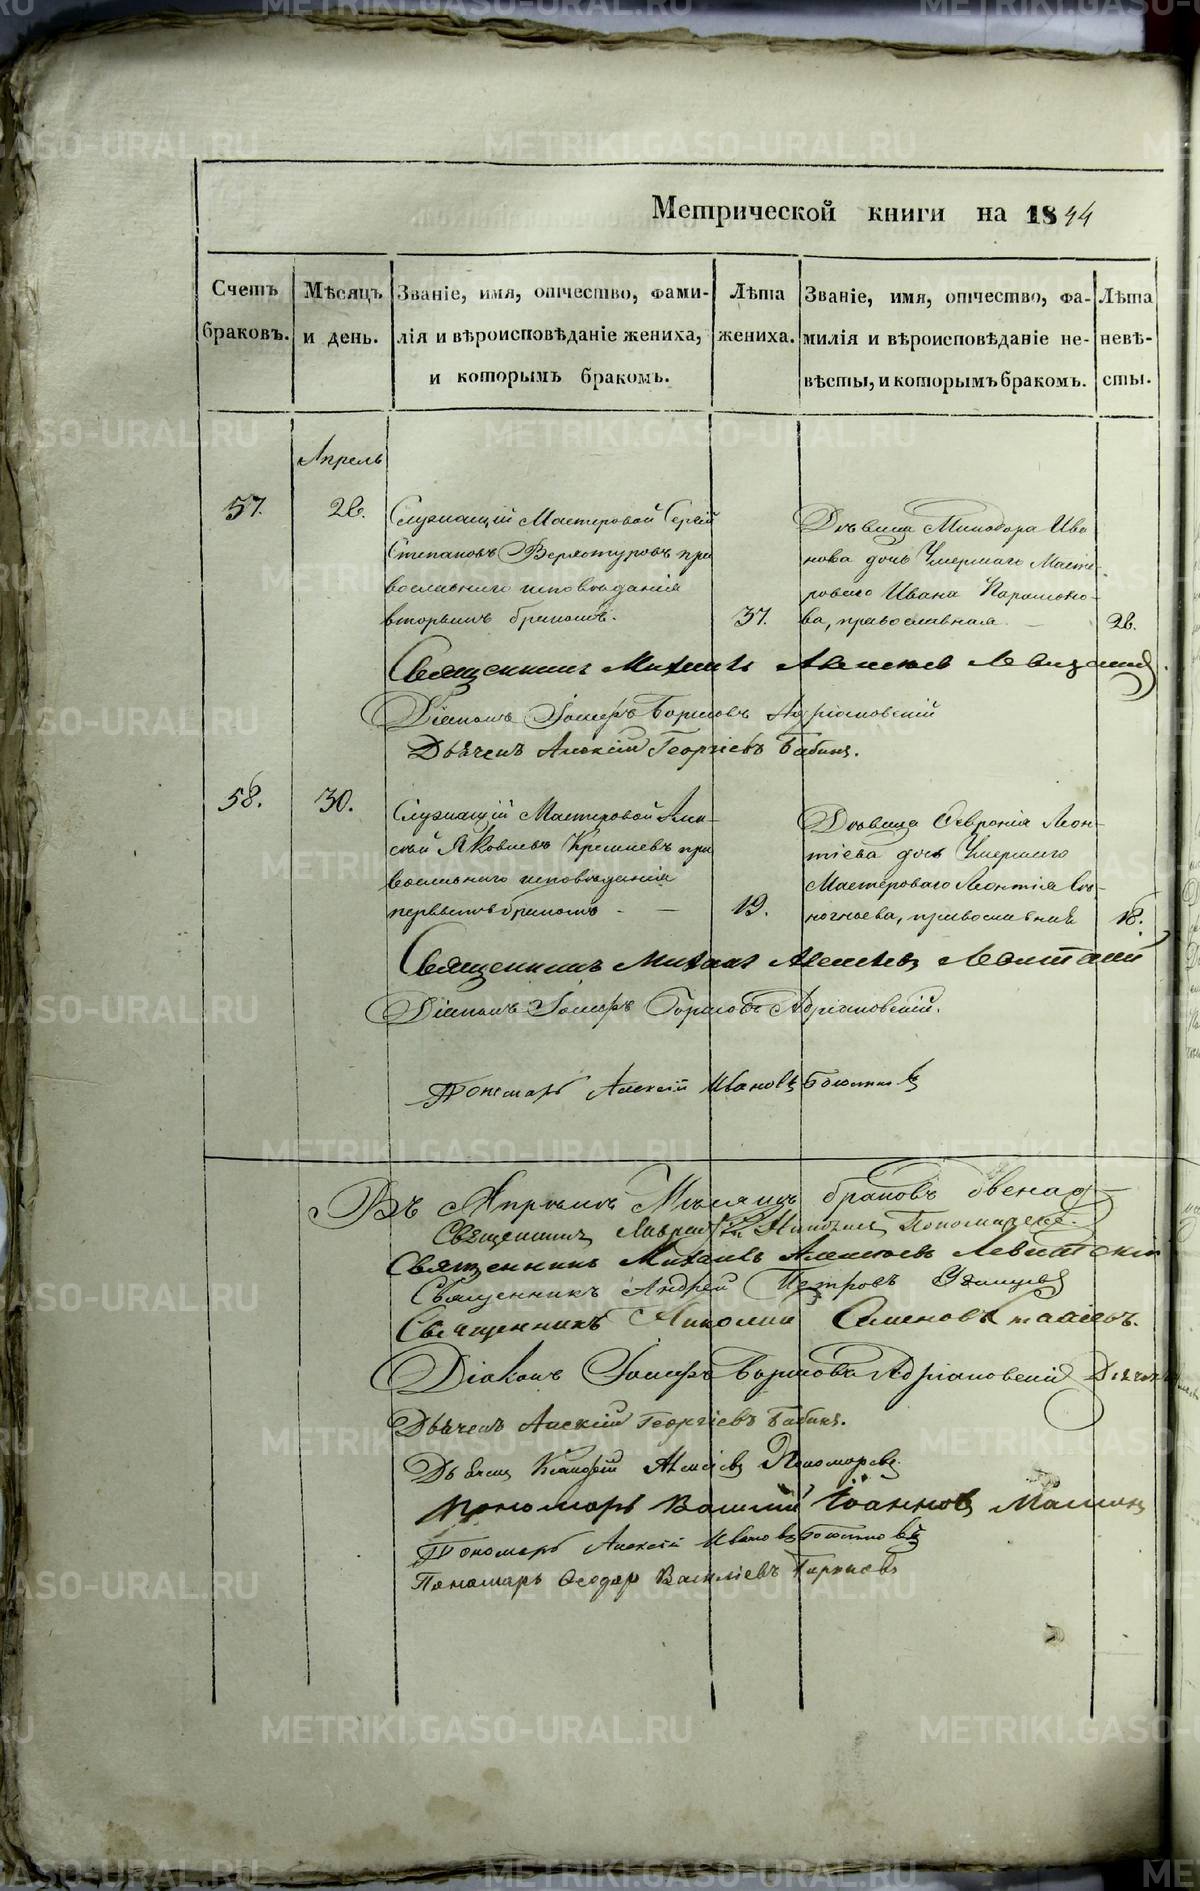 Метрической книги на 1844
Счетъ браковъ.
Мѣсяцъ и день.
Званіе, имя, отчество, фами-
лія и вѣроисповѣданіе жениха,
и которымъ бракомъ.
Лѣта жениха.
Званіе, имя, отчество, фа-
милія и вѣроисповѣданіе не-
вѣсты, и которымъ бракомъ.
Лѣта невѣ-
сты.
Апрель
57.
26.
Служащій Мастеровой Сергій
Степановъ Верхотуровъ пра
вославнаго исповѣданія
вторымъ бракомъ.
37.
Дѣвица Минодора Ива
нова дочь Умершаго Масте-
роваго Ивана Парамоно-
ва, православная
26.
Священникъ Михаилъ Алексѣевъ Левитскій.
Діаконъ Іосифъ Адріановскій
Дьячекъ Алексій Георгіевъ Бабинъ.
58.
30.
Служащій Мастеровой Але-
ксѣй Яковлевъ пра
вославнаго исповѣданія
первымъ бракомъ
19.
Дѣвица Февронія Леон-
тіева дочь Умершаго
Мастероваго Леонтія
православная
18.
Священникъ Михаилъ Алексѣевъ Левитскій
Діаконъ Іосифъ Адріановскій.
Пономарь Алексій Ивановъ
Въ Апрѣлѣ Мѣсяцѣ браковъ двенад-
Священникъ Пономаревъ.
Священникъ Михаилъ Алексѣевъ Левитскій
Священникъ Андрей Петровъ Удинцевъ
Священникъ Николай Семеновъ
Діаконъ Іосифъ Адріановскій
Дьячекъ Алексій Георгіевъ Бабинъ.
Дьячекъ Алексіевъ Пономаревъ.
Пономарь Василій Іоанновъ
Пономарь Алексій Ивановъ
Пономарь Феодоръ Василіевъ
METRIKI.GASO-URAL.RU